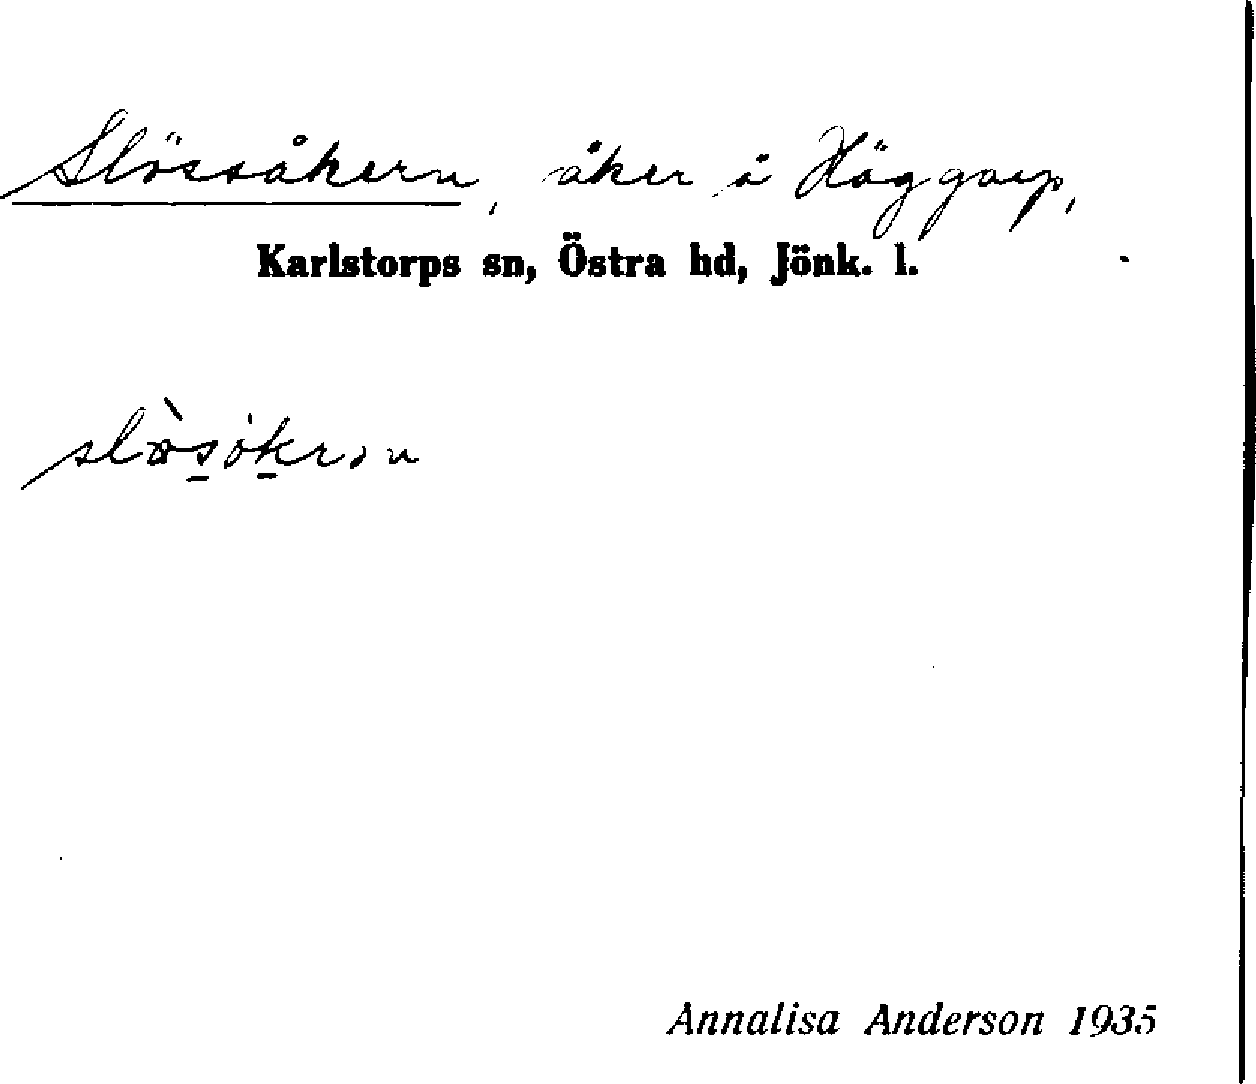 Slössåkern, åker å Häggarp,
Karlstorps sn, Östra hd, Jönk. l.
Annalisa Anderson 1935